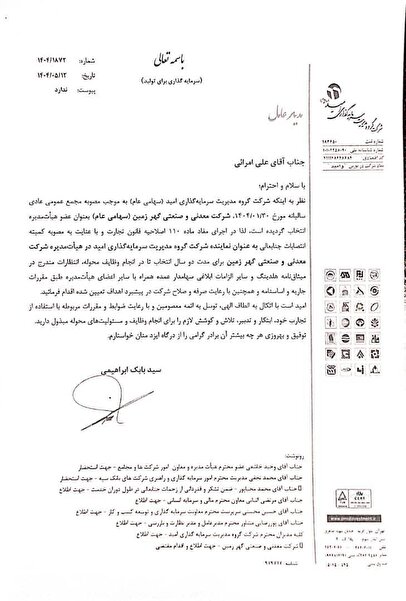 باسمه تعالی
(سرمایه گذاری برای تولید)
شماره: ۱۴۰۴/۱۸۷۲
تاریخ: ۱۴۰۴/۰۵/۱۲
پیوست: ندارد
مدیر عامل
جناب آقای علی امرائی
با سلام و احترام؛
نظر به اینکه شرکت گروه مدیریت سرمایه‌گذاری امید (سهامی عام) به موجب مصوبه مجمع عمومی عادی
سالیانه مورخ ۱۴۰۴/۰۱/۳۰، شرکت معدنی و صنعتی گهر زمین (سهامی عام) بعنوان عضو هیأت‌مدیره
انتخاب گردیده است، لذا در اجرای مفاد ماده ۱۱۰ اصلاحیه قانون تجارت و با عنایت به مصوبه کمیته
انتصابات جنابعالی به عنوان نماینده شرکت گروه مدیریت سرمایه‌گذاری امید در هیأت‌مدیره شرکت
معدنی و صنعتی گهر زمین برای مدت دو سال انتخاب تا در انجام وظایف محوله، انتظارات مندرج در
میثاق‌نامه هلدینگ و سایر الزامات ابلاغی سهامدار عمده همراه با سایر اعضای هیأت‌مدیره طبق مقررات
جاریه و اساسنامه و همچنین با رعایت صرفه و صلاح شرکت در پیشبرد اهداف تعیین شده اقدام فرمائید.
امید است با اتکال به الطاف الهی، توسل به ائمه معصومین و با رعایت ضوابط و مقررات مربوطه با استفاده از
تجارب خود، ابتکار و تدبیر، تلاش و کوشش لازم را برای انجام وظایف و مسئولیت‌های محوله مبذول دارید.
توفیق و بهروزی هر چه بیشتر آن برادر گرامی را از درگاه ایزد منان خواستارم.
سید بابک ابراهیمی
رونوشت:
جناب آقای وحید خاشعی عضو محترم هیأت مدیره و معاون امور شرکت ها و مجامع - جهت استحضار
جناب آقای محمد نجفی مدیریت محترم امور سرمایه گذاری و راهبری شرکت های بانک سپه - جهت استحضار
جناب آقای محمد محیاپور - ضمن تشکر و قدردانی از زحمات جنابعالی در طول دوران خدمت - جهت اطلاع
جناب آقای مرتضی معاون محترم مالی و سرمایه انسانی - جهت اطلاع
جناب آقای حسین محسنی سرپرست محترم معاونت سرمایه گذاری و توسعه کسب و کار - جهت اطلاع
جناب آقای پوررمضان مشاور محترم مدیرعامل و مدیر نظارت و بازرسی - جهت اطلاع
کلیه مدیران محترم شرکت گروه مدیریت سرمایه گذاری امید - جهت اطلاع
شرکت معدنی و صنعتی گهر زمین - جهت اطلاع و اقدام مقتضی
شناسه
شماره ثبت
شماره شناسنامه ملی
کد اقتصادی
www.omidinvestment.ir